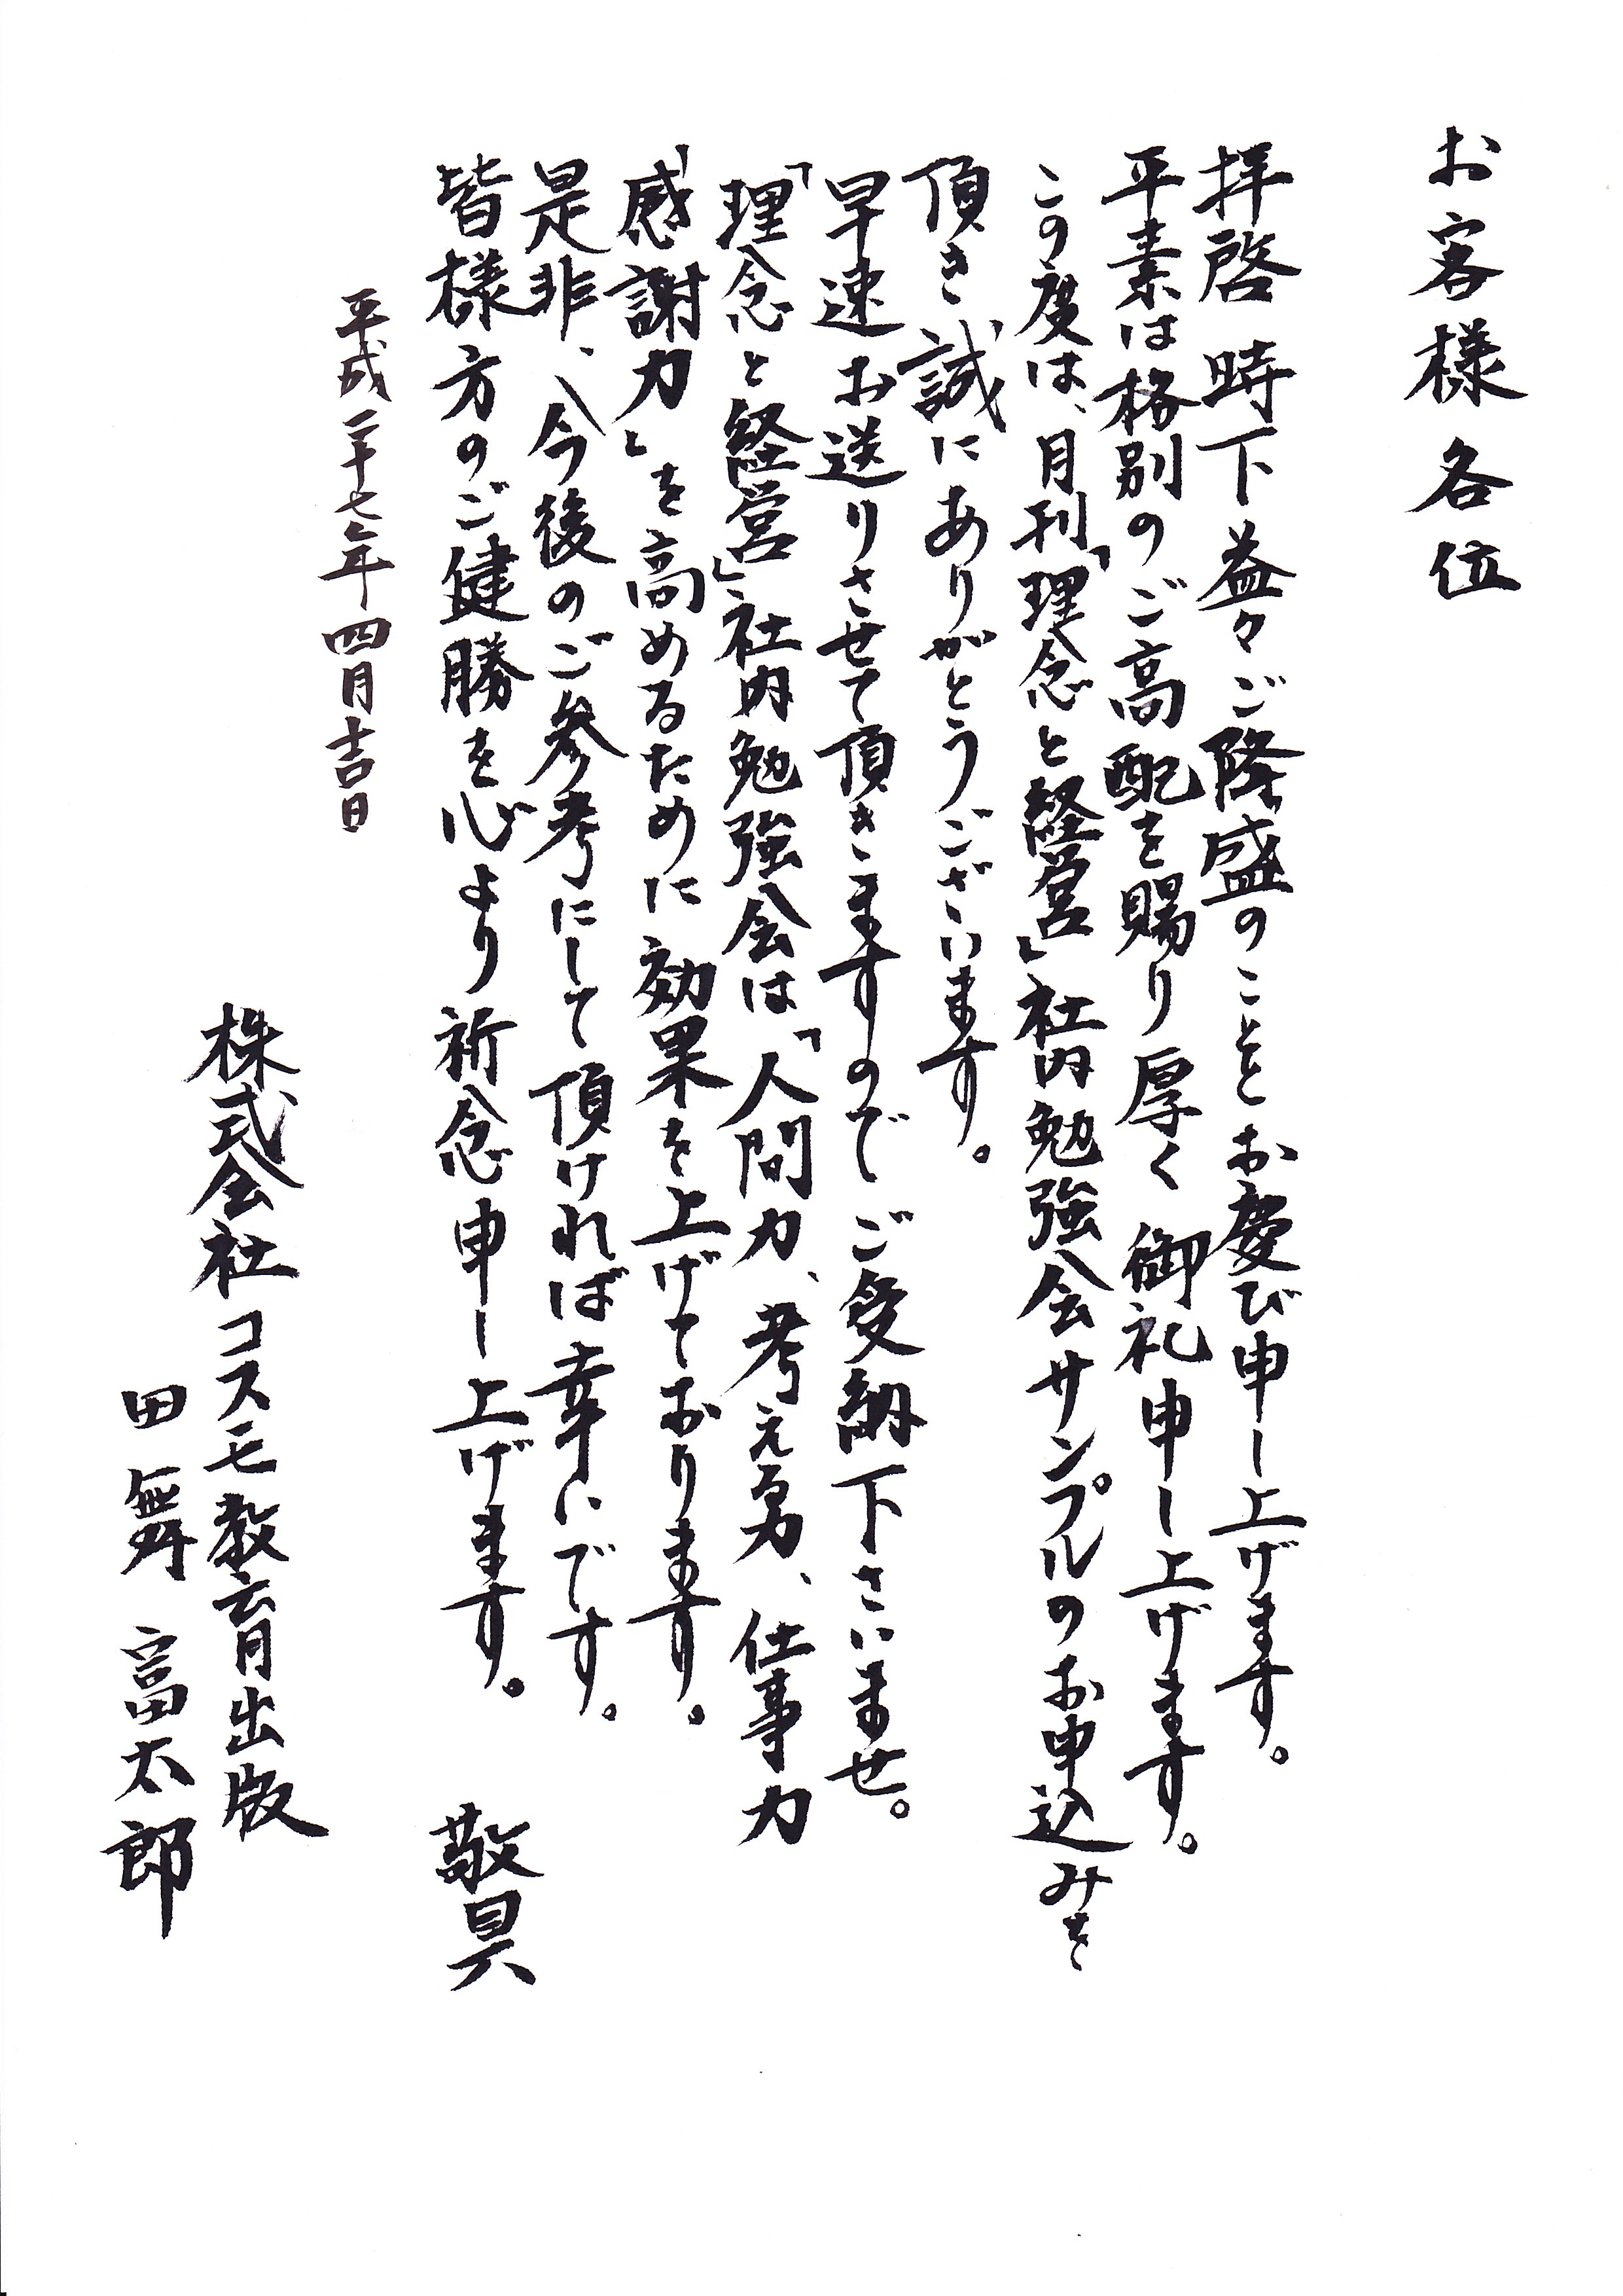 お客様各位
拝啓 時下益々ご隆盛のこととお慶び申し上げます。
平素は格別のご高配を賜り厚く御礼申し上げます。
この度は、月刊「理念と経営」社内勉強会サンプルのお申込みを
頂き誠にありがとうございます。
早速お送りさせて頂きますのでご受納下さいませ。
「理念と経営」社内勉強会は「人間力、考える力、仕事力
感謝力」を高めるために効果を上げております。
是非、今後のご参考にして頂ければ幸いです。
皆様方のご健勝を心より祈念申し上げます。
敬具
平成二十七年四月吉日
株式会社コスモ教育出版
田舞富太郎